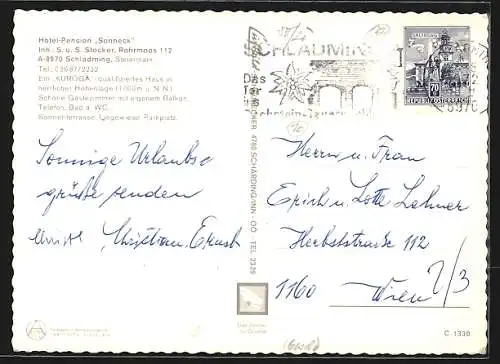 Hotel-Pension „Sonneck"
Inh. S. u. S. Stocker, Rohrmoos 112
A-8970 Schladming, Steiermark
Tel. 03687/2232
Ein „KUROGA"-qualifiziertes Haus in
herrlicher Höhenlage (1000 m ü. N. N.)
Schöne Gästezimmer mit eigenem Balkon,
Telefon, Bad u. WC.
Sonnenterrasse, Liegewiese, Parkplatz.
Sonnige Urlaubs
grüße senden
Christl, Christian, Ernst
4780 SCHÄRDING/INN · OÖ · TEL. 2326
SCHLADMING
Das
REPUBLIK ÖSTERREICH
70
8970
Herrn u. Frau
Erich u. Lotte Lehner
Herbststraße 112
1160 Wien
2/3
C 1330